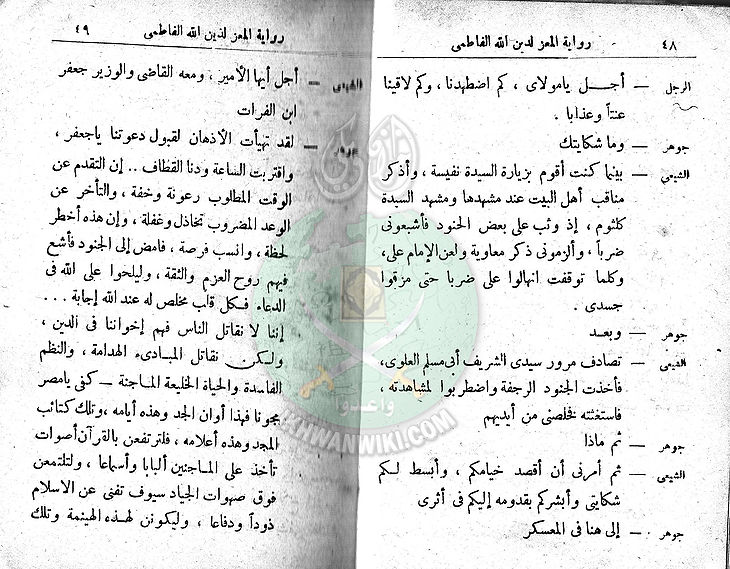 ٤٨ رواية المعز لدين الله الفاطمى
الرجل — أجــل يامولاى ، كم اضطهدنا ، وكم لاقينا
عنتاً وعذابا .
جوهر — وما شكايتك
الشيعى — بينما كنت أقوم بزيارة السيدة نفيسة ، وأذكر
مناقب أهل البيت عند مشهدها ومشهد السيدة
كلثوم ، إذ وثب على بعض الجنود فأشبعونى
ضرباً ، وألزمونى ذكر معاوية ولعن الإمام على،
وكلما توقفت انهالوا على ضربا حتى مزقوا
جسدى .
جوهر — وبعـد
الشيعى — تصادف مرور سيدى الشريف أبى مسلم العلوى،
فأخذت الجنود الرجفة واضطربوا لمشاهدته ،
فاستغثته فخلصنى من أيديهم
جوهر — ثم ماذا
الشيعى — ثم أمرنى أن أقصد خيامكم ، وأبسط لـكم
شكايتى وأبشركم بقدومه إليكم فى أثرى
جوهر — إلى هنا فى المعسكر
رواية المعز لدين الله الفاطمى ٤٩
الشيعى — أجل أيها الأمير ، ومعه القاضى والوزير جعفر
ابن الفرات
جوهر — لقد تهيأت الأذهان لقبول دعوتنا ياجعفر ،
واقتربت الساعة ودنا القطاف .. إن التقدم عن
الوقت المطلوب رعونة وخفة ، والتأخر عن
الوعد المضروب تخاذل وغفلة ، وإن هذه أخطر
لحظة ، وانسب فرصة ، فامض إلى الجنود فأشع
فيهم روح العزم والثقة ، وليلحوا على الله فى
الدعاء فـكل قلب مخلص له عند الله إجابة ...
إننا لا نقاتل الناس فهم إخواننا فى الدين ،
ولـكن نقاتل المبـادىء الهدامة ، والنظم
الفاسدة والحياة الخليعة المـاجنة — كفى يامصر
مجونا فهذا أوان الجد وهذه أيامه ، وتلك كتائب
المجد وهذه أعلامه ، فلترتفعن بالقرآن أصوات
تأخذ على المـاجنين ألبابا وأسماعا ، ولتلتمعن
فوق صهوات الجياد سيوف تفنى عن الاسلام
ذوداً ودفاعا ، وليكونن لهـذه الهينمة وتلك
واعدوا
IKHWANWIKI.COM